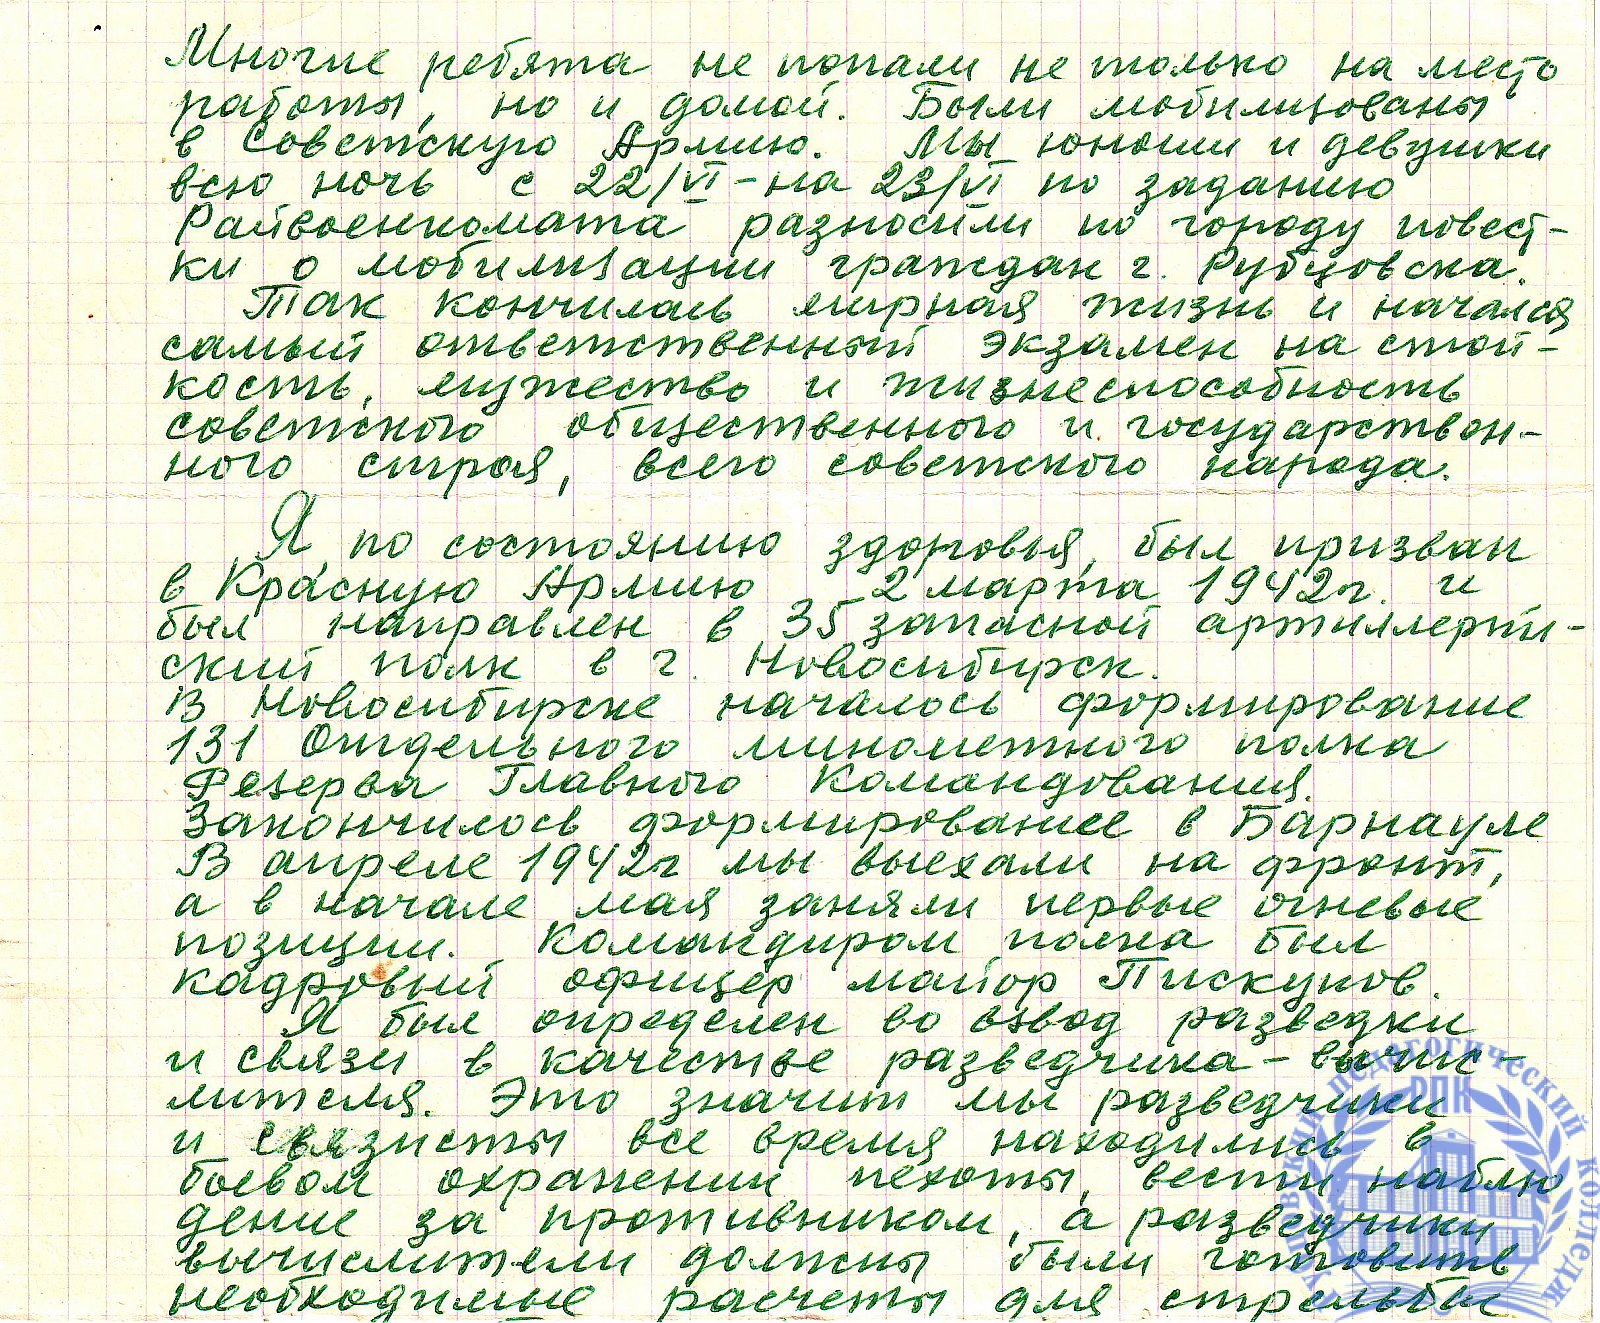 Многие ребята не попали не только на место
работы, но и домой. Были мобилизованы
в Советскую Армию. Мы юноши и девушки
всю ночь с 22/VI - на 23/VI по заданию
Райвоенкомата разносили по городу повест-
ки о мобилизации граждан г. Рубцовска.
Так кончилась мирная жизнь и начался
самый ответственный экзамен на стой-
кость, мужество и жизнеспособность
советского общественного и государствен-
ного строя, всего советского народа.
Я по состоянию здоровья, был призван
в Красную Армию 2 марта 1942 г. и
был направлен в 35 запасной артиллерти-
ский полк в г. Новосибирск.
В Новосибирске началось формирование
131 Отдельного минометного полка
Резерва Главного Командования.
Закончилось формирование в Барнауле
В апреле 1942 г мы выехали на фронт,
а в начале мая заняли первые огневые
позиции. Командиром полка был
кадровый офицер майор Пискунов.
Я был определен во взвод разведки
и связи в качестве разведчика - вычис-
лителя. Это значит мы разведчики
и связисты все время находились в
боевом охранении пехоты, вести наблю
дение за противником, а разведчики
вычислители должны были готовить
необходимые расчеты для стрельбы
Рубцовский педагогический колледж
РПК